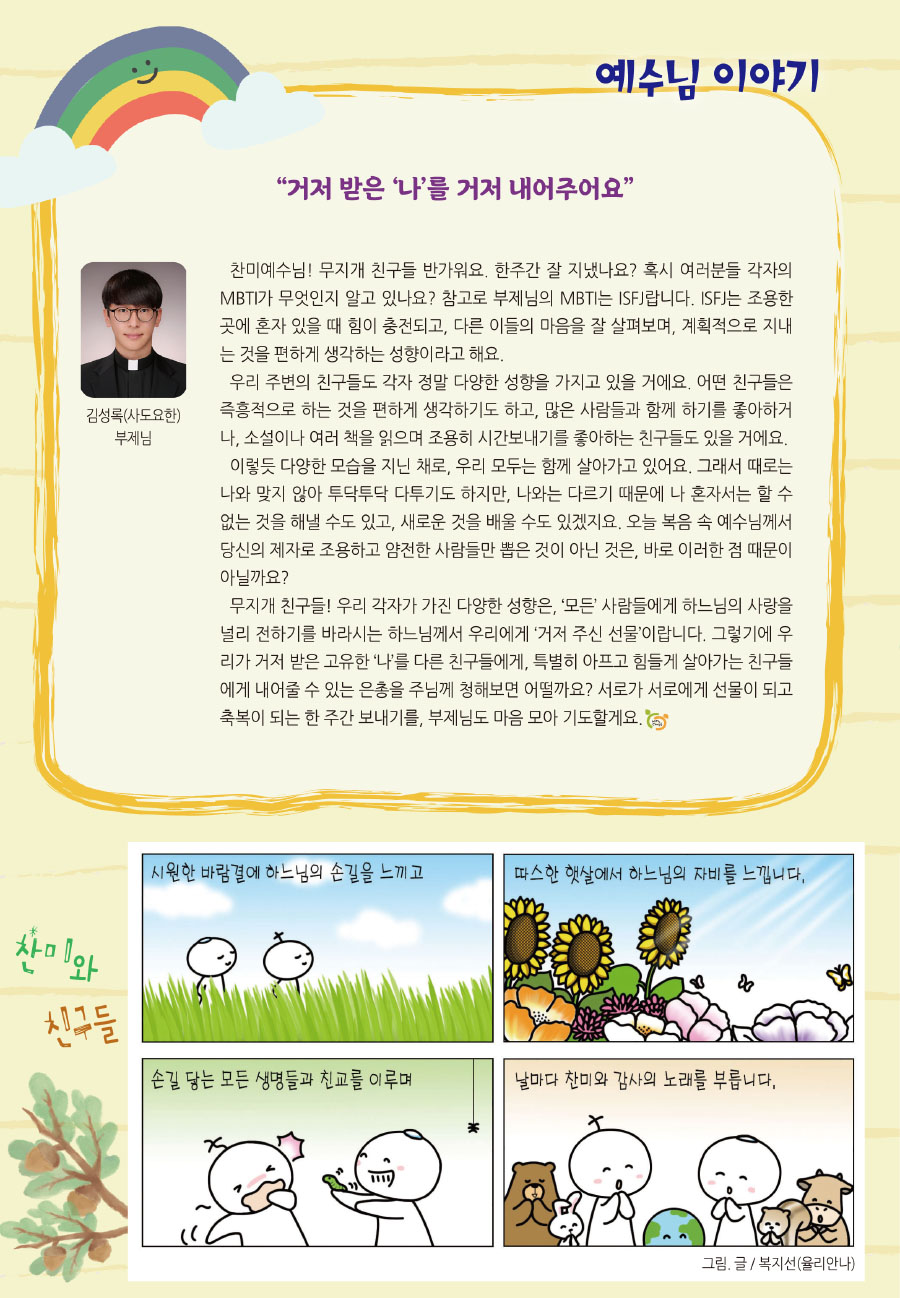 예수님 이야기
“거저 받은 ‘나’를 거저 내어주어요”
찬미예수님! 무지개 친구들 반가워요. 한주간 잘 지냈나요? 혹시 여러분들 각자의
MBTI가 무엇인지 알고 있나요? 참고로 부제님의 MBTI는 ISFJ랍니다. ISFJ는 조용한
곳에 혼자 있을 때 힘이 충전되고, 다른 이들의 마음을 잘 살펴보며, 계획적으로 지내
는 것을 편하게 생각하는 성향이라고 해요.
우리 주변의 친구들도 각자 정말 다양한 성향을 가지고 있을 거에요. 어떤 친구들은
즉흥적으로 하는 것을 편하게 생각하기도 하고, 많은 사람들과 함께 하기를 좋아하거
나, 소설이나 여러 책을 읽으며 조용히 시간보내기를 좋아하는 친구들도 있을 거에요.
이렇듯 다양한 모습을 지닌 채로, 우리 모두는 함께 살아가고 있어요. 그래서 때로는
나와 맞지 않아 투닥투닥 다투기도 하지만, 나와는 다르기 때문에 나 혼자서는 할 수
없는 것을 해낼 수도 있고, 새로운 것을 배울 수도 있겠지요. 오늘 복음 속 예수님께서
당신의 제자로 조용하고 얌전한 사람들만 뽑은 것이 아닌 것은, 바로 이러한 점 때문이
아닐까요?
무지개 친구들! 우리 각자가 가진 다양한 성향은, ‘모든’ 사람들에게 하느님의 사랑을
널리 전하기를 바라시는 하느님께서 우리에게 ‘거저 주신 선물’이랍니다. 그렇기에 우
리가 거저 받은 고유한 ‘나’를 다른 친구들에게, 특별히 아프고 힘들게 살아가는 친구들
에게 내어줄 수 있는 은총을 주님께 청해보면 어떨까요? 서로가 서로에게 선물이 되고
축복이 되는 한 주간 보내기를, 부제님도 마음 모아 기도할게요.
김성록(사도요한)
부제님
찬미와
친구들
시원한 바람결에 하느님의 손길을 느끼고
따스한 햇살에서 하느님의 자비를 느낍니다.
손길 닿는 모든 생명들과 친교를 이루며
날마다 찬미와 감사의 노래를 부릅니다.
그림. 글 / 복지선(율리안나)